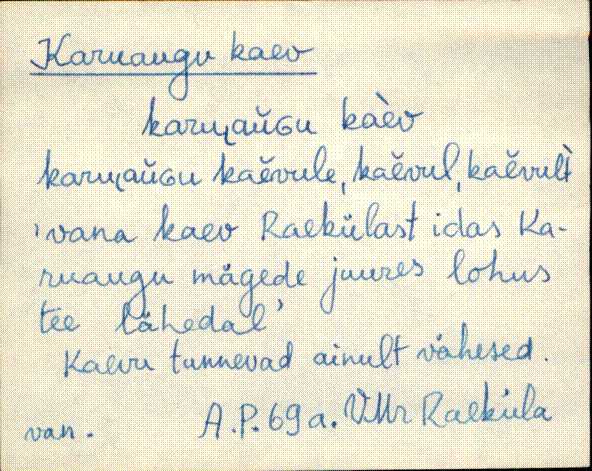 Karuaugu kaev
karu̯aŭɢu kàev
karu̯aŭɢu kaĕvule, kaĕvul, kaĕvult̀
'vana kaev Raekülast idas Ka-
ruaugu mägede juures lohus
tee lähedal'
Kaevu tunnevad ainult vähesed.
van. A.P. 69 a. VMr Raeküla